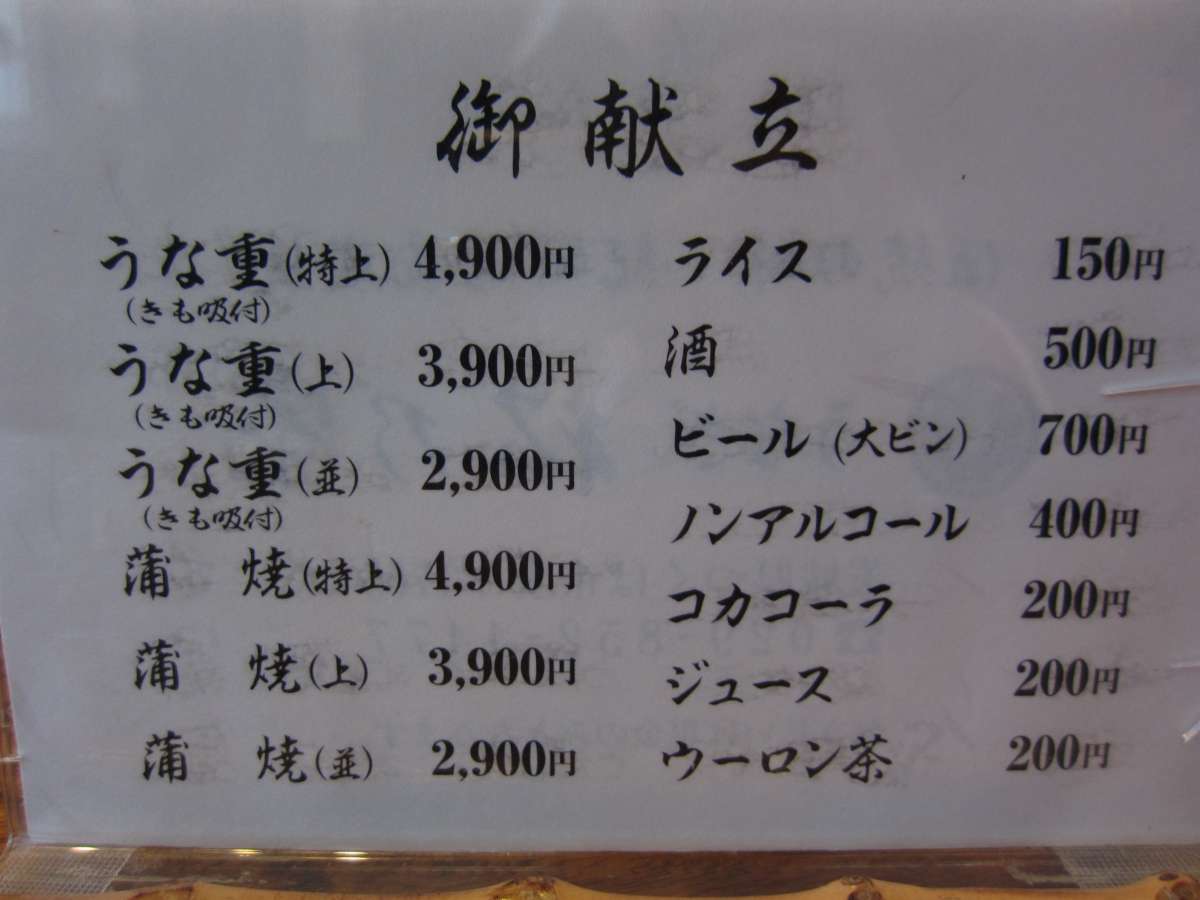 御献立
うな重(特上) 4,900円
(きも吸付)
うな重(上) 3,900円
(きも吸付)
うな重(並) 2,900円
(きも吸付)
蒲 焼(特上) 4,900円
蒲 焼(上) 3,900円
蒲 焼(並) 2,900円
ライス 150円
酒 500円
ビール (大ビン) 700円
ノンアルコール 400円
コカコーラ 200円
ジュース 200円
ウーロン茶 200円